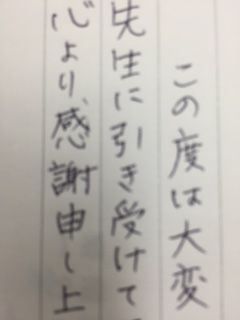 この度は大変
先生に引き受けて
心より、感謝申し上